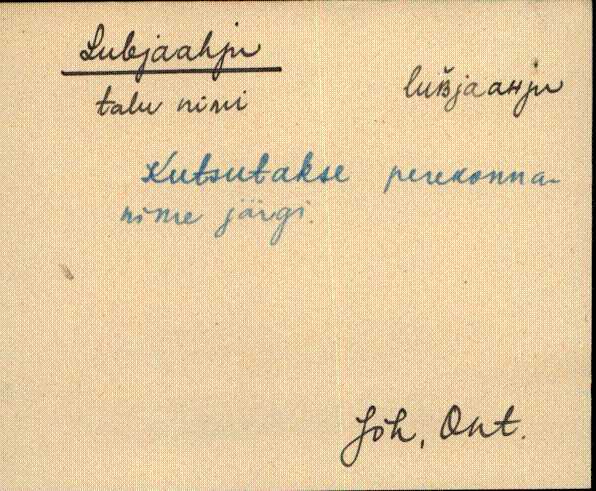 Lubjaahju
talu nimi luʙ̆jaaʜju
Kutsutakse perekonna-
nime järgi.
Jõh, Ont.